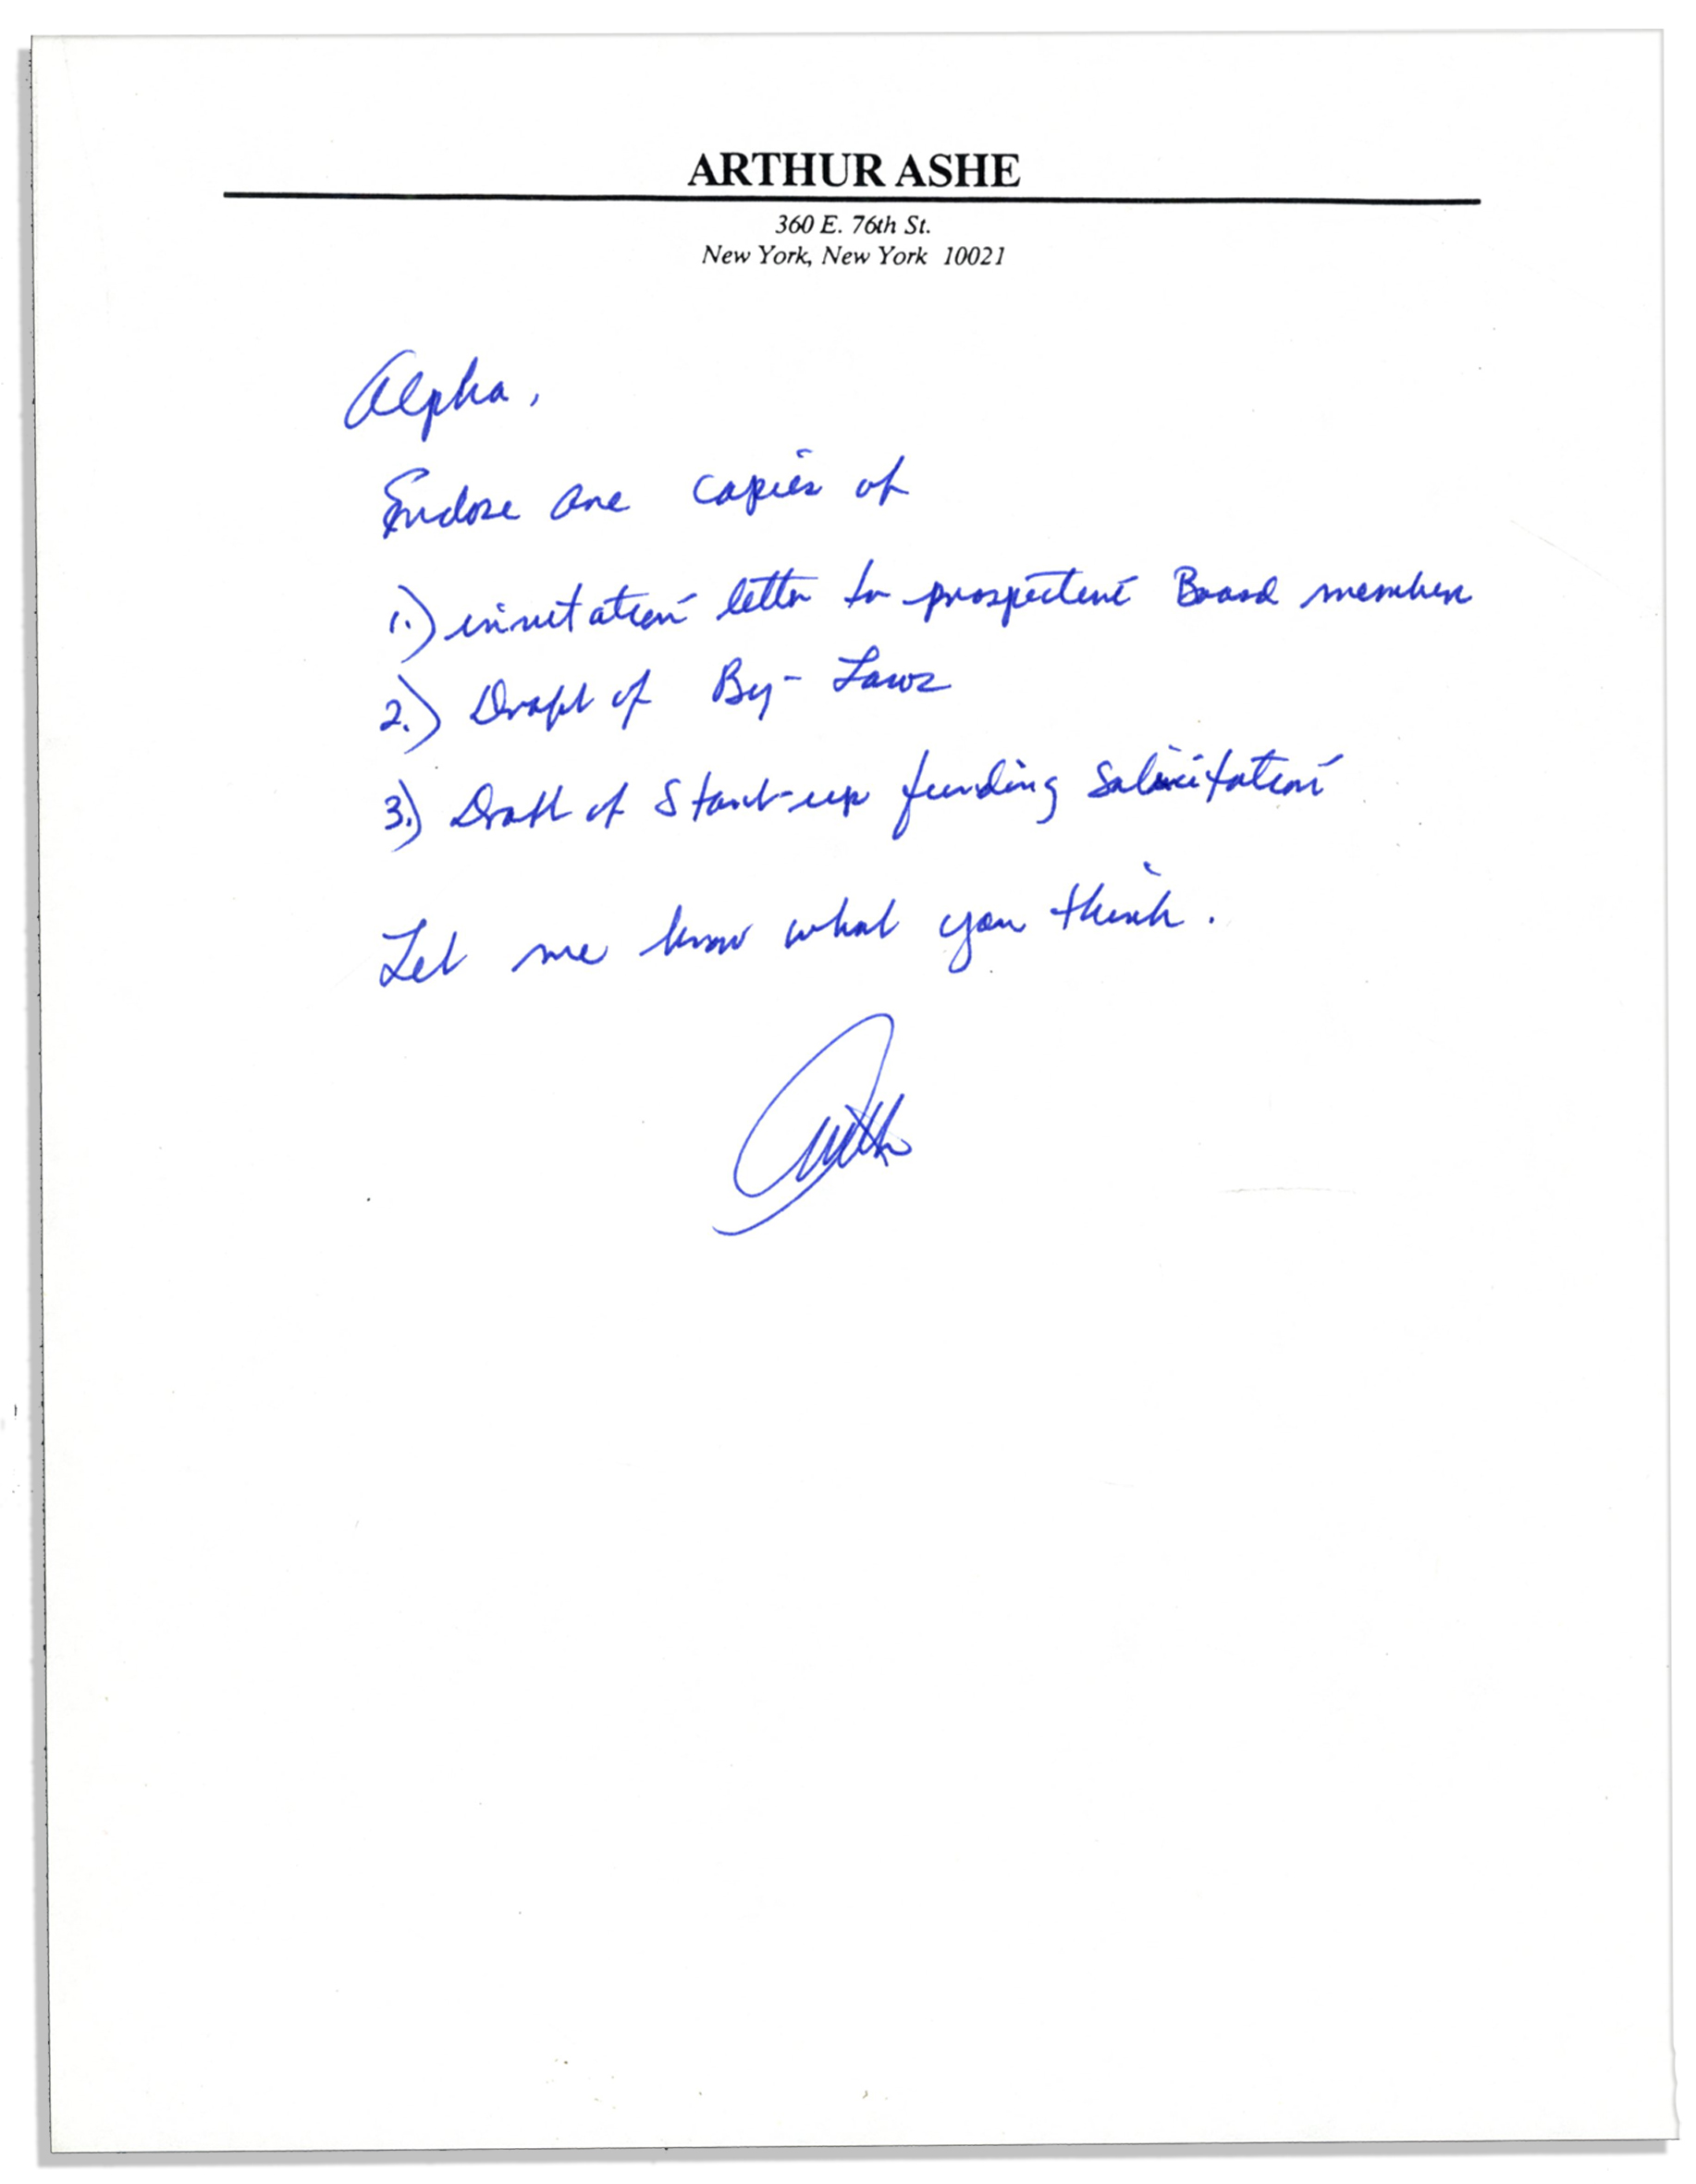 ARTHUR ASHE
360 E. 76th St.
New York, New York 10021
Alpha,
Enclose are copies of
1.) invitation letter to prospective Board members
2.) Draft of By-Laws
3.) Draft of Start-up funding Solicitation
Let me know what you think.
Arthur